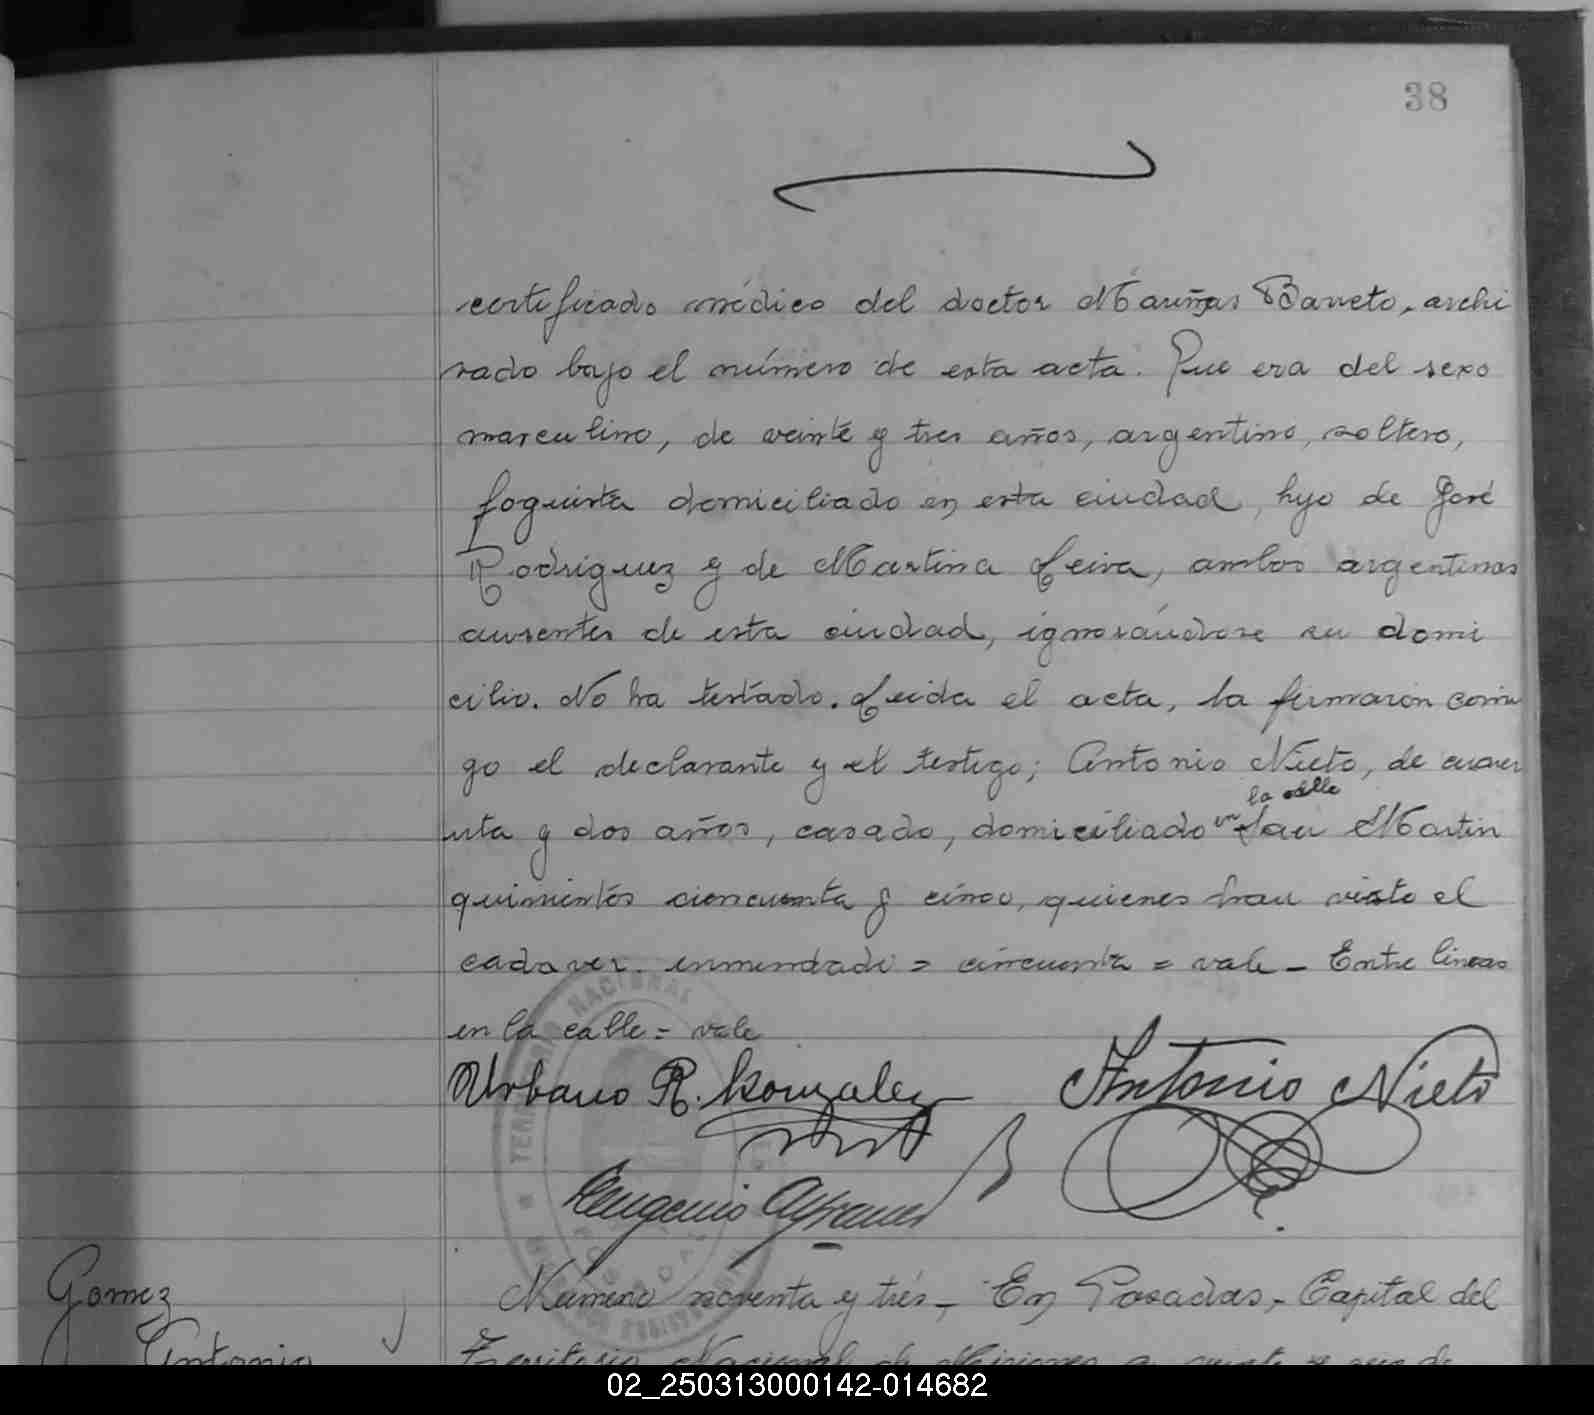 38
certificado médico del doctor Mariñas Barreto, archi
vado bajo el número de esta acta. Que era del sexo
masculino, de veinte y tres años, argentino, soltero,
foguista domiciliado en esta ciudad, hijo de José
Rodriguez y de Martina Leiva, ambos argentinos
ausentes de esta ciudad, ignorándose su domi
cilio. No ha testado. Leida el acta, la firmaron conmi
go el declarante y el testigo; Antonio Nieto, de cuare
nta y dos años, casado, domiciliado en la calle San Martin
quinientos cincuenta y cinco, quienes han visto el
cadaver. enmendado = cincuenta = vale - Entre lineas
en la calle = vale
Urbano R. Gonzalez Antonio Nieto
Eugenio
TERRITORIO NACIONAL
POSADAS
Gomez
Número noventa y trés - En Posadas, Capital del
Antonio
Territorio Nacional de Misiones a veinte y seis de
02_250313000142-014682